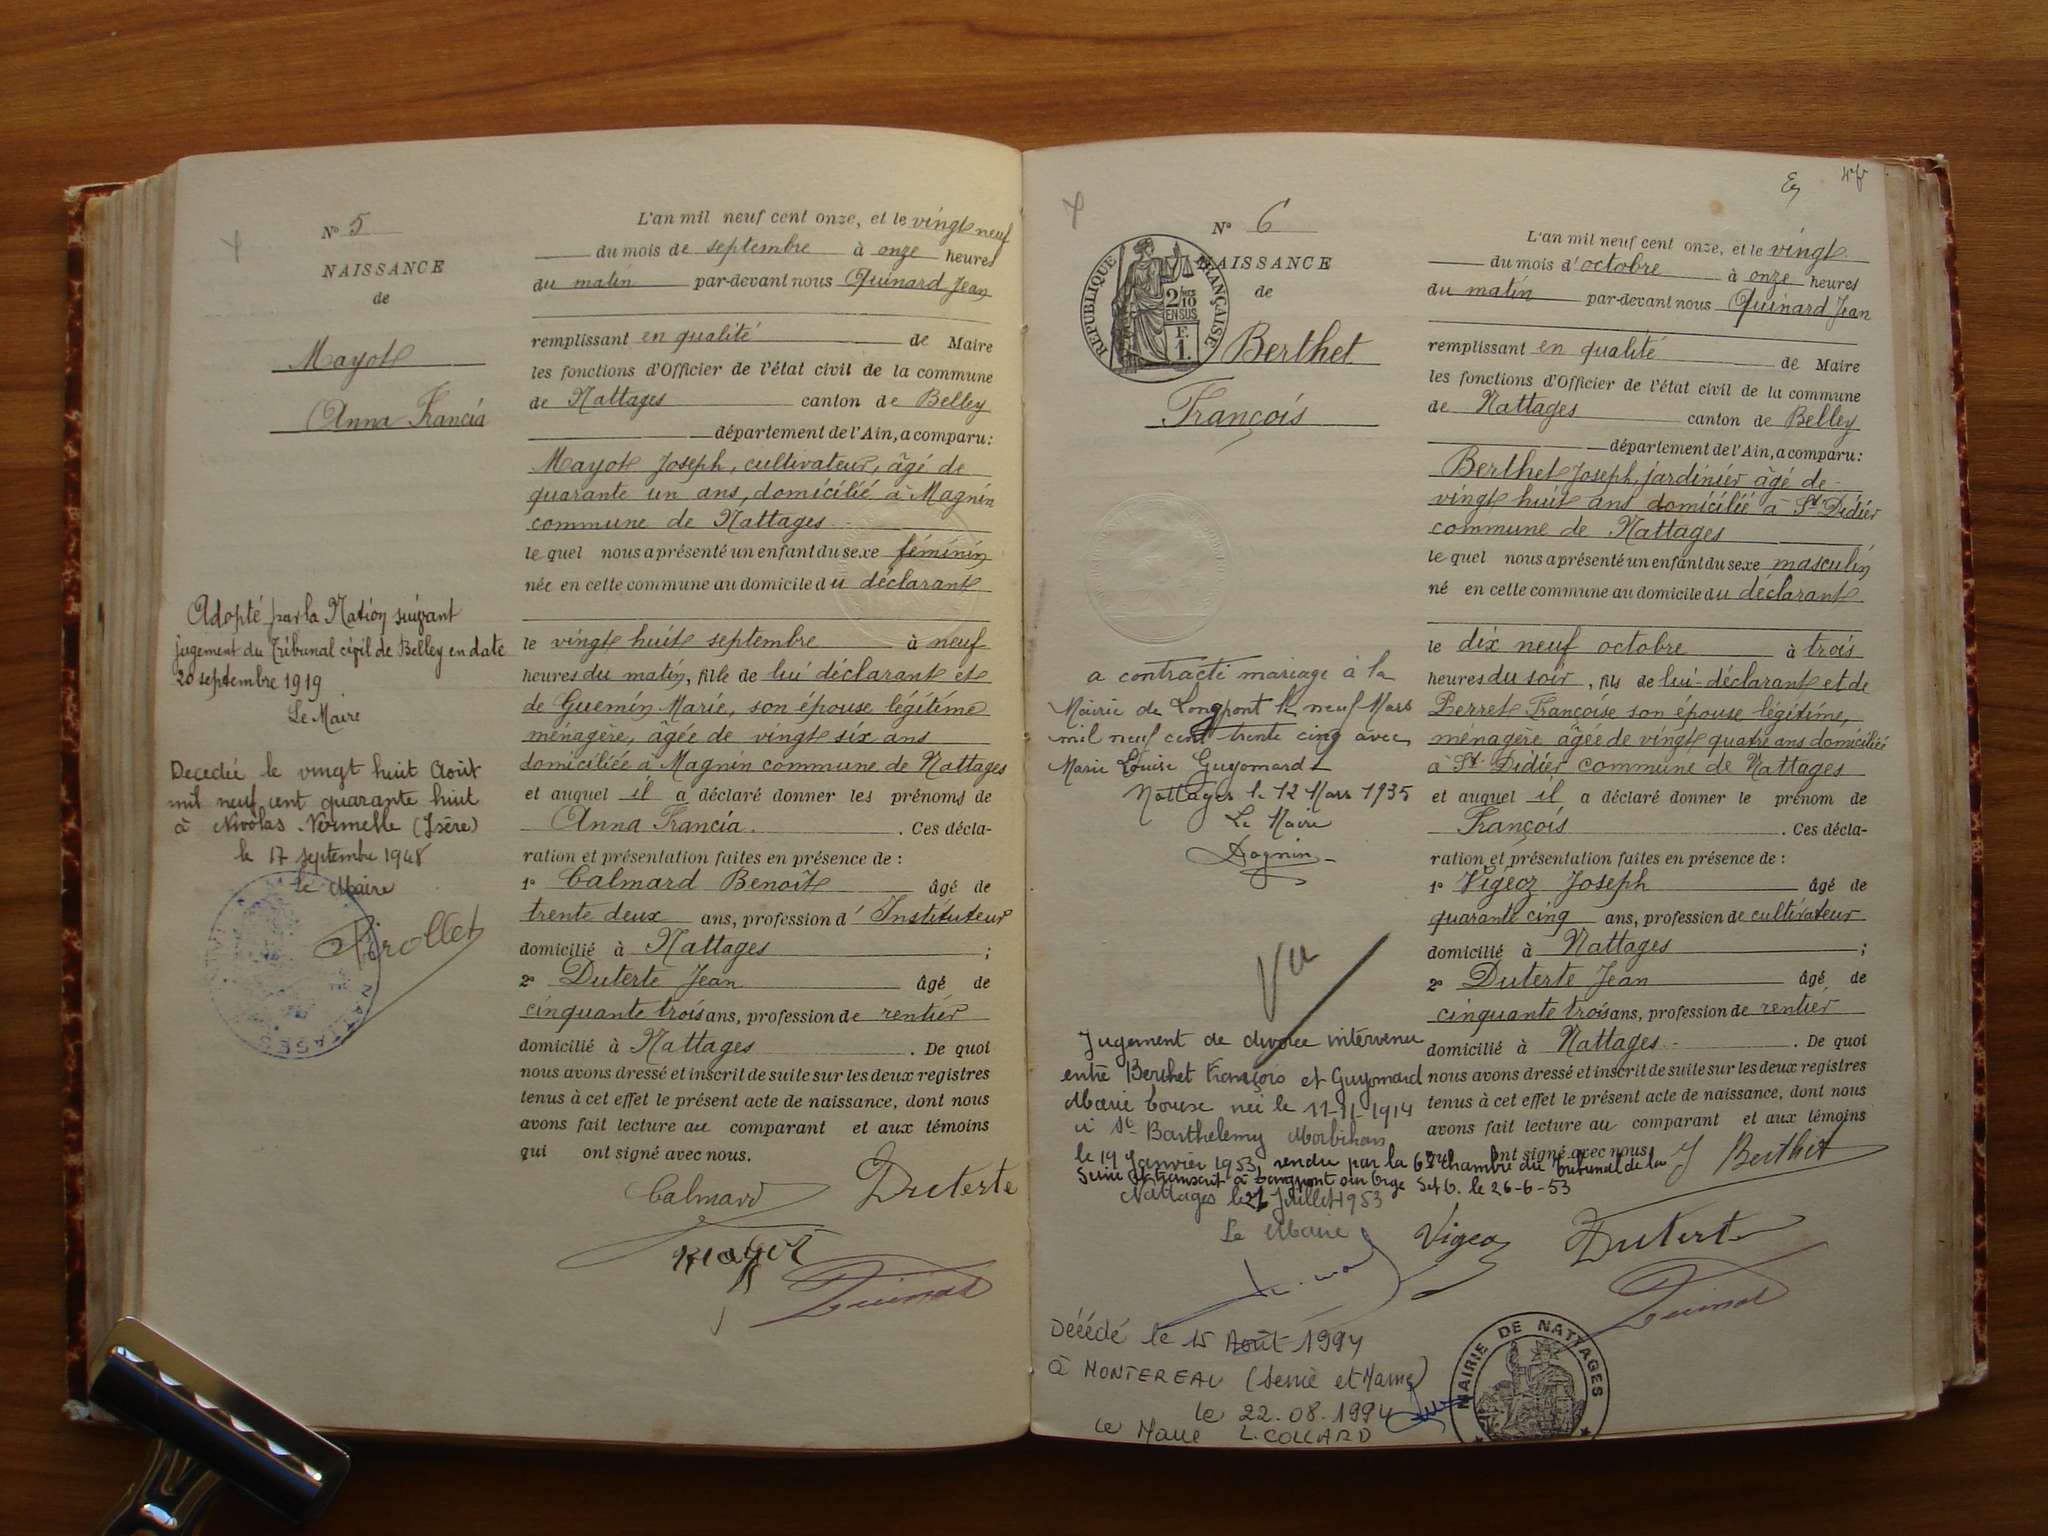 N° 5
NAISSANCE
de
Mayot
Anna Francia
Adopté par la Nation suivant
jugement du Tribunal civil de Belley en date
20 septembre 1919
Le Maire
Decedée le vingt huit Août
mil neuf cent quarante huit
à Nivolas-Vermelle (Isère)
le 17 septembre 1948
le Maire
Pirollet
L'an mil neuf cent onze, et le vingt neuf
du mois de septembre à onze heures
du matin par-devant nous Quinard Jean
remplissant en qualité de Maire
les fonctions d'Officier de l'état civil de la commune
de Nattages canton de Belley
département de l'Ain, a comparu:
Mayot Joseph, cultivateur, âgé de
quarante un ans, domicilié à Magnin
commune de Nattages
le quel nous a présenté un enfant du sexe féminin
née en cette commune au domicile du déclarant
le vingt huit septembre à neuf
heures du matin, fille de lui déclarant et
de Guemin Marie, son épouse légitime
ménagère, âgée de vingt six ans
domiciliée à Magnin commune de Nattages
et auquel il a déclaré donner les prénoms de
Anna Francia. Ces décla-
ration et présentation faites en présence de :
1° Calmard Benoît âgé de
trente deux ans, profession d'Instituteur
domicilié à Nattages ;
2° Duterte Jean âgé de
cinquante trois ans, profession de rentier
domicilié à Nattages. De quoi
nous avons dressé et inscrit de suite sur les deux registres
tenus à cet effet le présent acte de naissance, dont nous
avons fait lecture au comparant et aux témoins
qui ont signé avec nous.
Calmard Duterte
Mayot
Quinard
N° 6
NAISSANCE
de
REPUBLIQUE FRANÇAISE
2/10
EN SUS
F.
1.
Berthet
François
a contracté mariage à la
Mairie de Longpont le neuf Mars
mil neuf cent trente cinq avec
Marie Louise Guyomard
Nattages le 12 Mars 1935
Le Maire
Dagnin
Vu
Jugement de divorce intervenu
entre Berthet François et Guyomard
Marie Louise née le 11-11-1914
à St Barthelemy Morbihan
le 19 Janvier 1953, rendu par la 6e chambre du Tribunal de la
Seine et transcrit à Longpont sur Orge S et O. le 26-6-53
Nattages le 27 Juillet 1953
Le Maire
Décédé le 15 Août 1994
à MONTEREAU (Seine et Marne)
le 22.08.1994
Le Maire L. COLLARD
L'an mil neuf cent onze, et le vingt
du mois d'octobre à onze heures
du matin par-devant nous Quinard Jean
remplissant en qualité de Maire
les fonctions d'Officier de l'état civil de la commune
de Nattages canton de Belley
département de l'Ain, a comparu:
Berthet Joseph, jardinier âgé de
vingt huit ans domicilié à St Didier
commune de Nattages
le quel nous a présenté un enfant du sexe masculin
né en cette commune au domicile du déclarant
le dix neuf octobre à trois
heures du soir, fils de lui-déclarant et de
Perret Françoise son épouse légitime,
ménagère âgée de vingt quatre ans domiciliée
à St Didier commune de Nattages
et auquel il a déclaré donner le prénom de
François. Ces décla-
ration et présentation faites en présence de :
1° Vigéoz Joseph âgé de
quarante cinq ans, profession de cultivateur
domicilié à Nattages ;
2° Duterte Jean âgé de
cinquante trois ans, profession de rentier
domicilié à Nattages. De quoi
nous avons dressé et inscrit de suite sur les deux registres
tenus à cet effet le présent acte de naissance, dont nous
avons fait lecture au comparant et aux témoins
qui ont signé avec nous.
J Berthet
Vigeoz Duterte
Quinard
MAIRIE DE NATTAGES